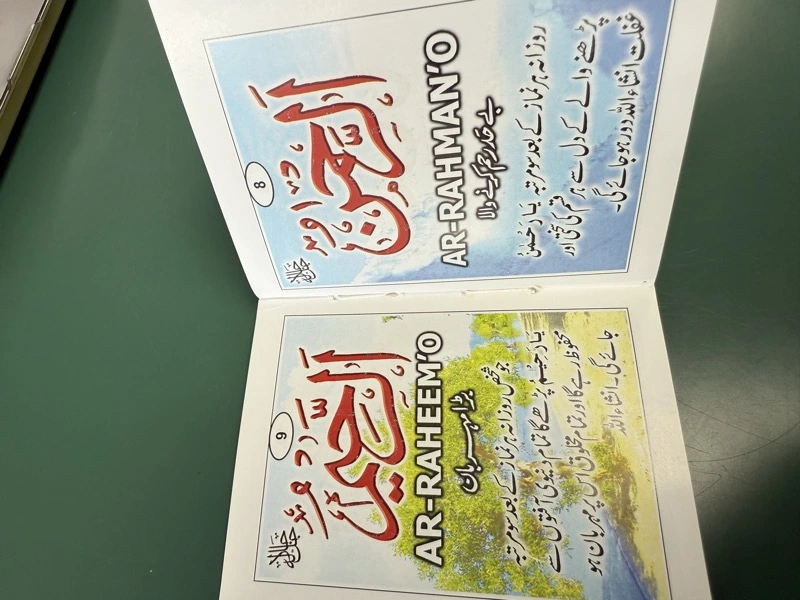 8
اَلرَّحْمٰنُ
جل جلالہ
AR-RAHMAN'O
بے حد رحم کرنے والا
روزانہ ہر نماز کے بعد سو مرتبہ یَا رَحْمٰنُ
پڑھنے والے کے دل سے ہر قسم کی سختی اور
غفلت انشاء اللہ دور ہو جائے گی۔
9
اَلرَّحِیْمُ
جل جلالہ
AR-RAHEEM'O
بڑا مہربان
جو شخص روزانہ ہر نماز کے بعد سو مرتبہ
یَا رَحِیْمُ پڑھے گا تمام دنیوی آفتوں سے
محفوظ رہے گا اور تمام مخلوق اس پر مہربان ہو
جائے گی۔ انشاء اللہ